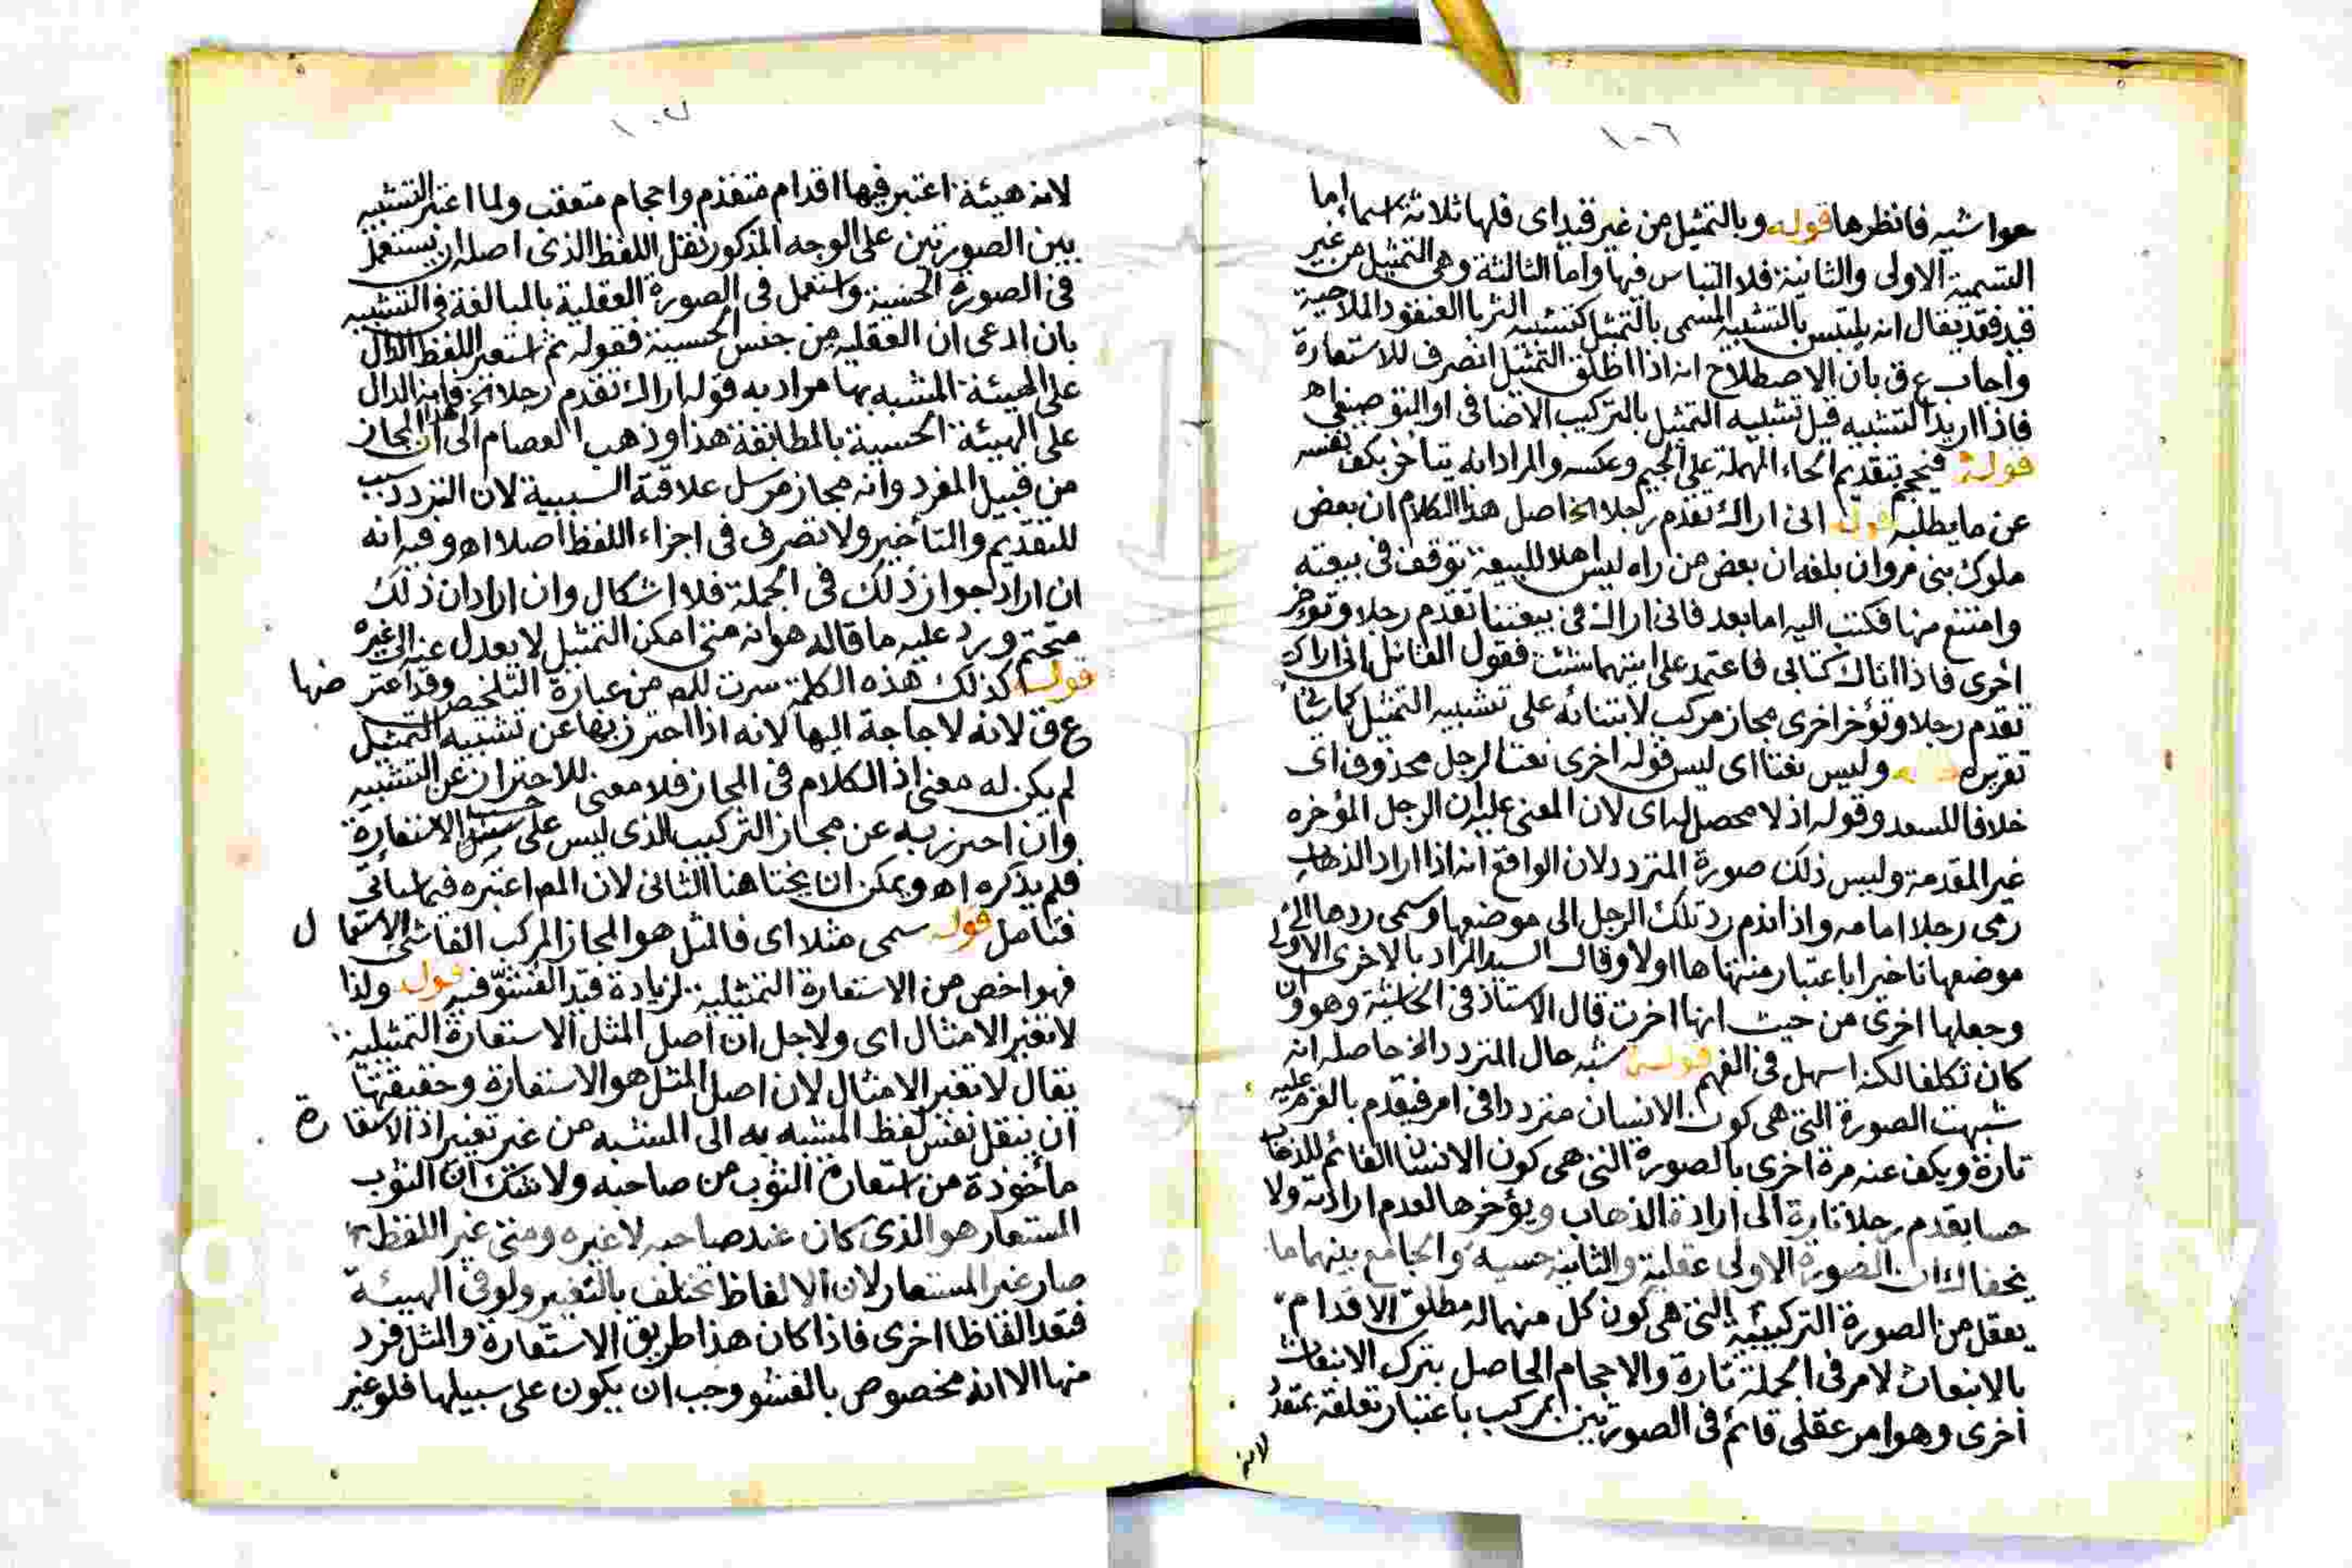 ١٠٦
حواشيه فانظرها قوله وبالتمثيل من غير قيد اى فلها ثلاثة اسماء اما
التسمية الاولى والثانية فلا التباس فيها واما الثالثة وهى التمثيل من غير
قيد فقد يقال انه يلتبس بالتشبيه المسمى بالتمثيل كتشبيه الثريا العنقود الملاحية
واجاب ع ق بان الاصطلاح انه اذا اطلق التمثيل انصرف للاستعارة
فاذا اريد التشبيه قيل تشبيه التمثيل بالتركيب الاضافى او التوصيفى اه
قوله فيحجم بتقديم الحاء المهملة على الجيم وعكسه والمراد انه يتاخر بكف نفسه
عن ما يطلبه قوله انى اراك تقدم رجلا الخ اصل هذا الكلام ان بعض
ملوك بنى مروان بلغه ان بعض من راه ليس اهلا للبيعة توقف فى بيعته
وامتنع منها فكتب اليه اما بعد فانى اراك فى بيعتنا تقدم رجلا وتؤخر
اخرى فاذا اتاك كتابى فاعتمد على ايتهما شئت فقول القائل انى اراك
تقدم رجلا وتؤخر اخرى مجاز مركب لابتنائه على تشبيه التمثيل كما سياتى
تقريره قوله وليس نعتا اى ليس قوله اخرى نعتا لرجل محذوف اى
خلافا للسعد وقوله اذ لا محصل له اى لان المعنى عليه ان الرجل المؤخره
غير المقدمة وليس ذلك صورة المتردد لان الواقع انه اذا اراد الذهاب
رمى رجلا امامه واذا ندم رد تلك الرجل الى موضعها وسمى ردها الى
موضعها تاخيرا باعتبار منتهاها اولا وقال السيد المراد بالاخرى الاولى
وجعلها اخرى من حيث انها اخرت قال الاستاذ فى الحاشية وهو وان
كان تكلفا لكنه اسهل فى الفهم قوله شبه حال المتردد الخ حاصله انه
شبهت الصورة التى هى كون الانسان مترددا فى امر فيقدم بالعزم عليه
تارة ويكف عنه مرة اخرى بالصورة التى هى كون الانسان القائم للذهاب
حسا يقدم رجلا تارة الى ارادة الذهاب ويؤخرها لعدم ارادته ولا
يخفاك ان الصورة الاولى عقلية والثانية حسية والجامع بينهما ما
يعقل من الصورة التركيبية التى هى كون كل منهما له مطلق الاقدام
بالانبعاث لامر فى الجملة تارة والاحجام الحاصل بترك الانبعاث
اخرى وهو امر عقلى قائم فى الصورتين مركب باعتبار تعلقه بمتعدد
لانه
١٠٧
لانه هيئة اعتبر فيها اقدام متقدم واحجام متعقب ولما اعتبر التشبيه
بين الصورتين على الوجه المذكور نقل اللفظ الذى اصله ان يستعمل
فى الصورة الحسية واستعمل فى الصورة العقلية بالمبالغة فى التشبيه
بان ادعى ان العقليه من جنس الحسية فقوله ثم استعير اللفظ الدال
على الهيئة المشبه بها مراد به قوله اراك تقدم رجلا الخ فانه الدال
على الهيئة الحسية بالمطابقة هذا وذهب العصام الى ان هذا المجاز
من قبيل المفرد وانه مجاز مرسل علاقته السببية لان التردد سبب
للتقديم والتأخير ولا تصرف فى اجزاء اللفظ اصلا اه وفيه انه
ان اراد جواز ذلك فى الجملة فلا اشكال وان اراد ان ذلك
متحتم ورد عليه ما قاله هو انه متى امكن التمثيل لا يعدل عنه الى غيره
قوله كذلك هذه الكلمة سرت للمص من عبارة التلخيص وقد اعترضها
ع ق لانه لا حاجة اليها لانه اذا احترز بها عن تشبيه التمثيل
لم يكن له معنى اذ الكلام فى المجاز فلا معنى للاحتراز عن التشبيه
وان احترز به عن مجاز التركيب الذى ليس على الاستعارة
فلم يذكره اه ويمكن ان يختا هنا الثانى لان المص اعتبره فيما سيأتى
فتامل قوله سمى مثلا اى فالمثل هو المجاز المركب الفاشى الاستعمال
فهو اخص من الاستعارة التمثيلية لزيادة قيد الفشو فيه قوله ولذا
لا تغير الامثال اى ولاجل ان اصل المثل الاستعارة التمثيلية
يقال لا تغير الامثال لان اصل المثل هو الاستعارة وحقيقتها
ان ينقل نفس لفظ المشبه به الى المشبه من غير تغيير اذ الاستعارة
مأخوذة من استعارة الثوب من صاحبه ولا شك ان الثوب
المستعار هو الذى كان عند صاحبه لا غيره ومتى غير اللفظ
صار غير المستعار لان الالفاظ تختلف بالتغيير ولو فى الهيئة
فتعد الفاظا اخرى فاذا كان هذا طريق الاستعارة والمثل فرد
منها الا انه مخصوص بالفشو وجب ان يكون على سبيلها فلو غير